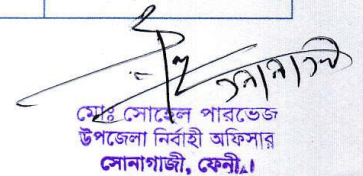 মোঃ সোহেল পারভেজ
উপজেলা নির্বাহী অফিসার
সোনাগাজী, ফেনী।